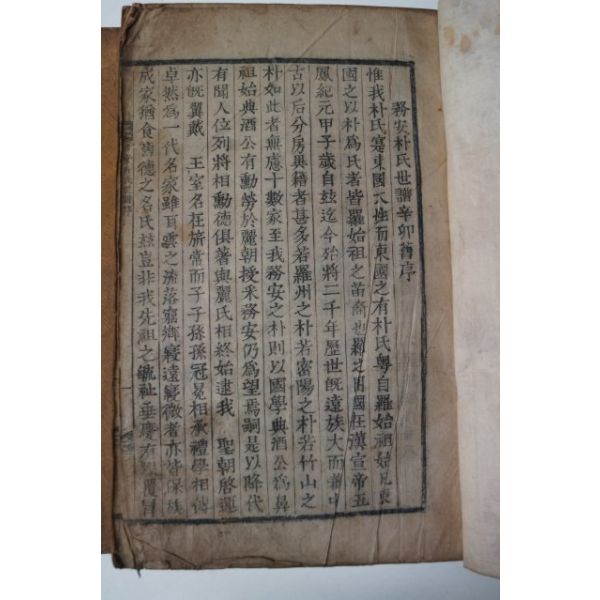 務安朴氏世譜辛卯舊序
惟我朴氏寔東國大姓而東國之有朴氏粤自羅始祖始凡東
國之以朴爲氏者皆羅始祖之苗裔也羅之有國在漢宣帝五
鳳紀元甲子歲自玆迄今殆將二千年歷世旣遠族大而兼中
古以后分房異籍者甚多若羅州之朴若密陽之朴若竹山之
朴如此者無慮十數家至我務安之朴則以國學典酒公爲鼻
祖始典酒公有勳勞於麗朝授采務安仍爲望焉嗣是以降代
有聞人位列將相勳德俱著與麗氏相終始逮我 聖朝啓運
亦旣翼戴 王室名在旂常而子子孫孫冠冕相承禮學相傳
卓然爲一代名家雖耳雲之流落窮鄕寢遠寢微者亦皆保族
成家猶食舊德之名氏玆豈非我先祖之毓祉垂慶有